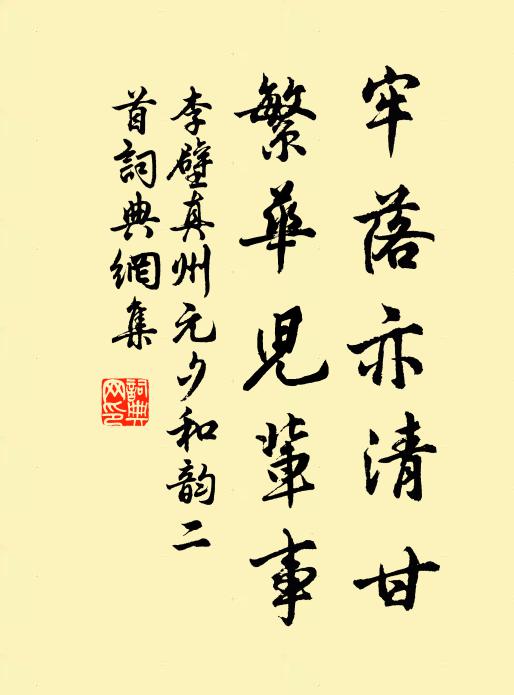 牢落亦清甘
繁華児輩事
李壁真州元夕和韵二
首詞典網集
詞典
网印